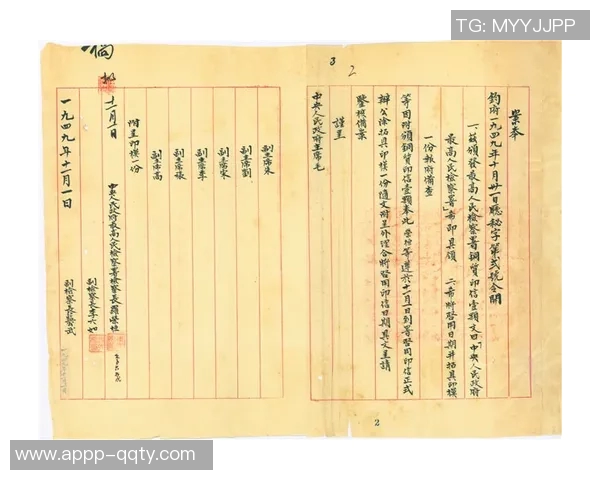 TG: MYYJJPP
3
2
案奉
鈞府一九四九年十月廿一日聽秘字第弍號令開
一、茲頒發最高人民檢察署銅質印信壹顆文曰「中央人民政府
最高人民檢察署」希即具領 二、希將啓用日期并拓具印模
一份報府備查
等因附頒銅質印信壹顆奉此 榮桓等遵於十一月一日到署啓用印信正式
辦公除拓具印模一份隨文附呈外理合將啓用印信日期具文呈請
鑒核備案
謹呈
中央人民政府主席毛
副主席朱
副主席劉
副主席宋
副主席李
副主席張
副主席高
附呈印模一份
中央人民政府最高人民檢察署檢察長羅榮桓
副檢察長李六如
副檢察長藍公武
十一月一日
一九四九年十一月一日
2
www-appp-qqty.com